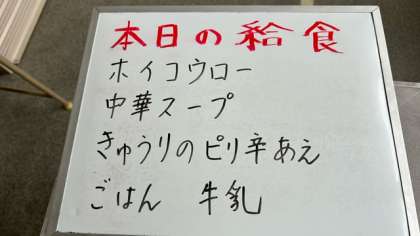 本日の給食
ホイコウロー
中華スープ
きゅうりのピリ辛あえ
ごはん 牛乳